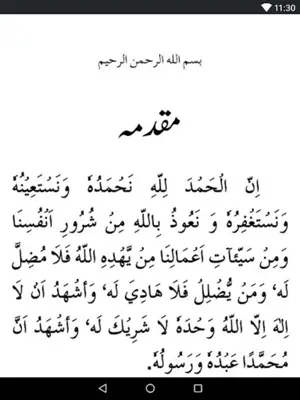 11:30
بسم الله الرحمن الرحيم
مقدمه
اِنّ الْحَمْدَ لِلّٰهِ نَحْمَدُهٗ وَنَسْتَعِيْنُهٗ
وَنَسْتَغْفِرُهٗ وَ نَعُوذُ بِاللّٰهِ مِنْ شُرُورِ اَنْفُسِنَا
وَمِنْ سَيِّئاتِ اَعْمَالِنَا مِنْ يَّهْدِهِ اللّٰهُ فَلَا مُضِلَّ
لَه، وَمَنْ يُّضْلِلُ فَلَا هَادِيَ لَه، وَاَشْهَدُ اَنْ لَا
اِلٰهَ اِلَّا اللّٰهُ وَحْدَهٗ لَا شَرِيْكَ لَه، وَاَشْهَدُ اَنَّ
مُحَمَّدًا عَبْدُهٗ وَرَسُولُهٗ.